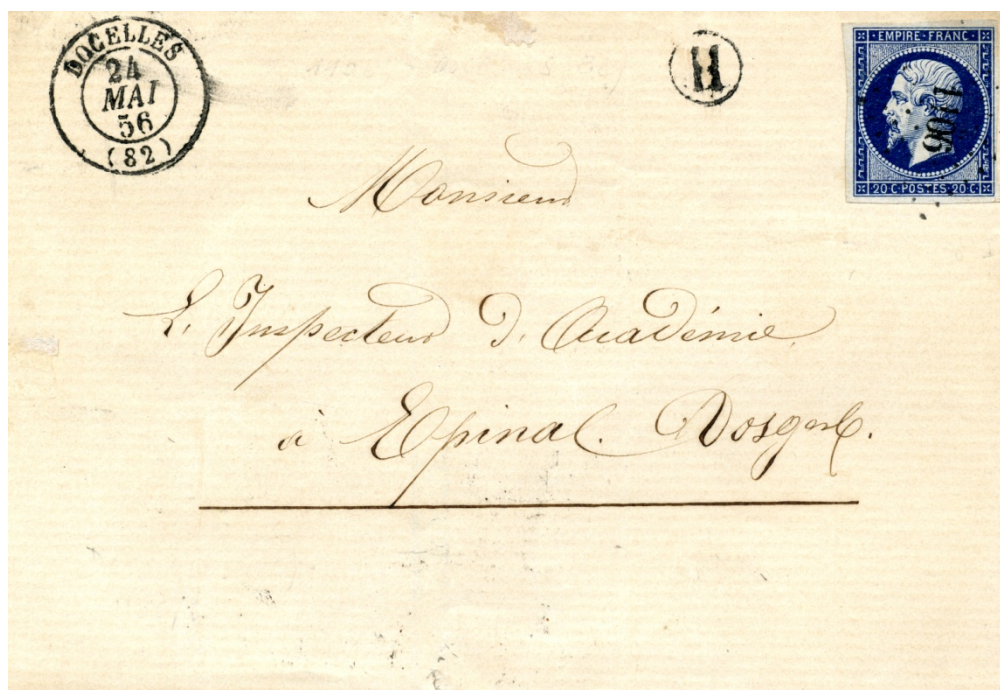 DOCELLES
24
MAI
56
(82)
H
EMPIRE·FRANC
1106
20 C·POSTES·20 C
Monsieur
L'Inspecteur d'Académie
à Epinal. Vosges.